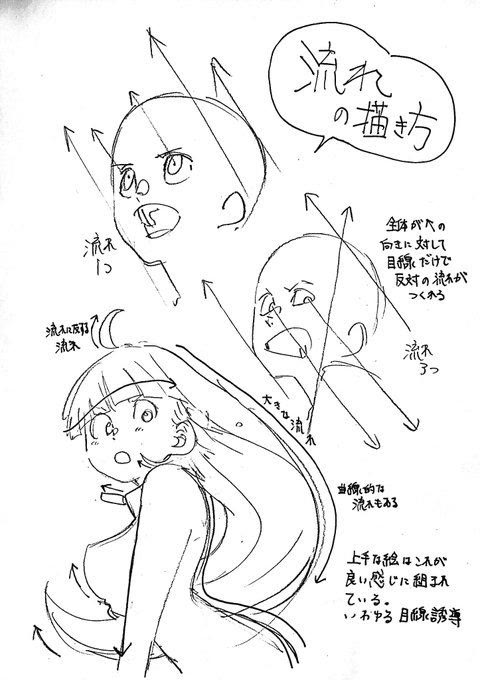 流れ
の描き方
流れ
1つ
全体が↖の
向きに対して
目線だけで
反対の流れが
つくれる
流れ
3つ
流れに反する
流れ
大きな流れ
曲線的な
流れもある
上手な絵はこれが
良い感じに組まれ
ている。
いわゆる目線誘導